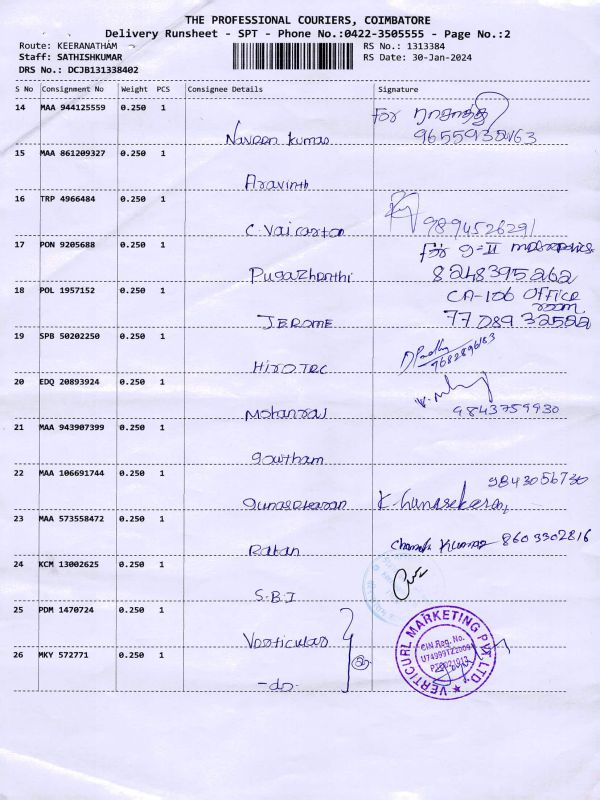 THE PROFESSIONAL COURIERS, COIMBATORE
Delivery Runsheet - SPT - Phone No.:0422-3505555 - Page No.:2
Route: KEERANATHAM
RS No.: 1313384
Staff: SATHISHKUMAR
RS Date: 30-Jan-2024
DRS No.: DCJB131338402
S No Consignment No Weight PCS Consignee Details Signature
14 MAA 944125559 0.250 1
For
Naveen Kumar
15 MAA 861209327 0.250 1
Aravinth
16 TRP 4966484 0.250 1
9894526291
17 PON 9205688 0.250 1
Pugazhenthi 8248395262
18 POL 1957152 0.250 1
CA-106 Office
room
JEROME
19 SPB 50202250 0.250 1
HIROTEC
20 EDQ 20893924 0.250 1
Mohanraj 9843759930
21 MAA 943907399 0.250 1
Gowtham
22 MAA 106691744 0.250 1
9843056730
Gunasekaran K. Gunasekaran
23 MAA 573558472 0.250 1
Ratan Kumar 8603302816
24 KCM 13002625 0.250 1
S.B.I
25 PDM 1470724 0.250 1
Verticular
26 MKY 572771 0.250 1
-do-
VERTICURL MARKETING PVT. LTD.
CIN Reg. No.
U74999TZ2009